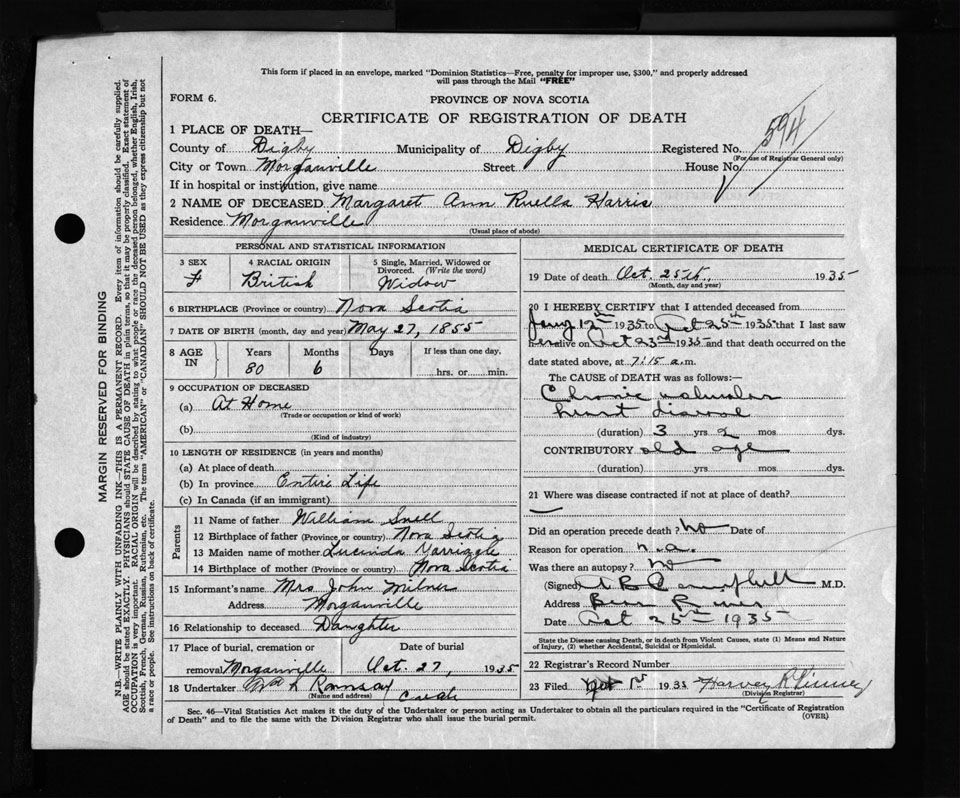 This form if placed in an envelope, marked "Dominion Statistics—Free, penalty for improper use, $300," and properly addressed
will pass through the Mail "FREE"
FORM 6.
PROVINCE OF NOVA SCOTIA
CERTIFICATE OF REGISTRATION OF DEATH
594
1 PLACE OF DEATH—
County of Digby Municipality of Digby Registered No.
(For use of Registrar General only)
City or Town Morganville Street House No.
If in hospital or institution, give name
2 NAME OF DECEASED Margaret Ann Ruella Harris
Residence Morganville
(Usual place of abode)
PERSONAL AND STATISTICAL INFORMATION
3 SEX 4 RACIAL ORIGIN 5 Single, Married, Widowed or
Divorced. (Write the word)
F British Widow
6 BIRTHPLACE (Province or country) Nova Scotia
7 DATE OF BIRTH (month, day and year) May 27, 1855
8 AGE IN Years Months Days If less than one day,
80 6 hrs. or min.
9 OCCUPATION OF DECEASED
(a) At Home
(Trade or occupation or kind of work)
(b)
(Kind of industry)
10 LENGTH OF RESIDENCE (in years and months)
(a) At place of death
(b) In province Entire Life
(c) In Canada (if an immigrant)
Parents
11 Name of father William Snell
12 Birthplace of father (Province or country) Nova Scotia
13 Maiden name of mother Lucinda
14 Birthplace of mother (Province or country) Nova Scotia
15 Informant's name Mrs John Milner
Address Morganville
16 Relationship to deceased Daughter
17 Place of burial, cremation or Date of burial
removal Morganville Oct. 27, 1935
18 Undertaker Wm Ramsay
(Name and address)
MEDICAL CERTIFICATE OF DEATH
19 Date of death Oct. 25th, 1935
(Month, day and year)
20 I HEREBY CERTIFY that I attended deceased from
12th 1935 to Oct 25th 1935 that I last saw
her alive on Oct 23rd 1935 and that death occurred on the
date stated above, at 7:15 a.m.
The CAUSE of DEATH was as follows:—
Chronic valvular
heart disease
(duration) 3 yrs 2 mos dys.
CONTRIBUTORY old age
(duration) yrs mos dys.
21 Where was disease contracted if not at place of death?
—
Did an operation precede death? no Date of
Reason for operation n.a.
Was there an autopsy? no
(Signed) Campbell M.D.
Address Bear River
Date Oct 25th 1935
State the Disease causing Death, or in death from Violent Causes, state (1) Means and Nature
of Injury, (2) whether Accidental, Suicidal or Homicidal.
22 Registrar's Record Number
23 Filed 1935 Harvey
(Division Registrar)
Sec. 46—Vital Statistics Act makes it the duty of the Undertaker or person acting as Undertaker to obtain all the particulars required in the "Certificate of Registration
of Death" and to file the same with the Division Registrar who shall issue the burial permit.
(OVER)
MARGIN RESERVED FOR BINDING
N.B.—WRITE PLAINLY WITH UNFADING INK—THIS IS A PERMANENT RECORD. Every item of information should be carefully supplied.
AGE should be stated EXACTLY. PHYSICIANS should STATE CAUSE OF DEATH in plain terms, so that it may be properly classified. Exact statement of
OCCUPATION is very important. RACIAL ORIGIN will be described by stating to what people or race the deceased person belonged, whether English, Irish,
Scottish, French, German, Russian, Ruthenian, etc. The terms "AMERICAN" or "CANADIAN" SHOULD NOT BE USED as they express citizenship but not
a race or people. See instructions on back of certificate.